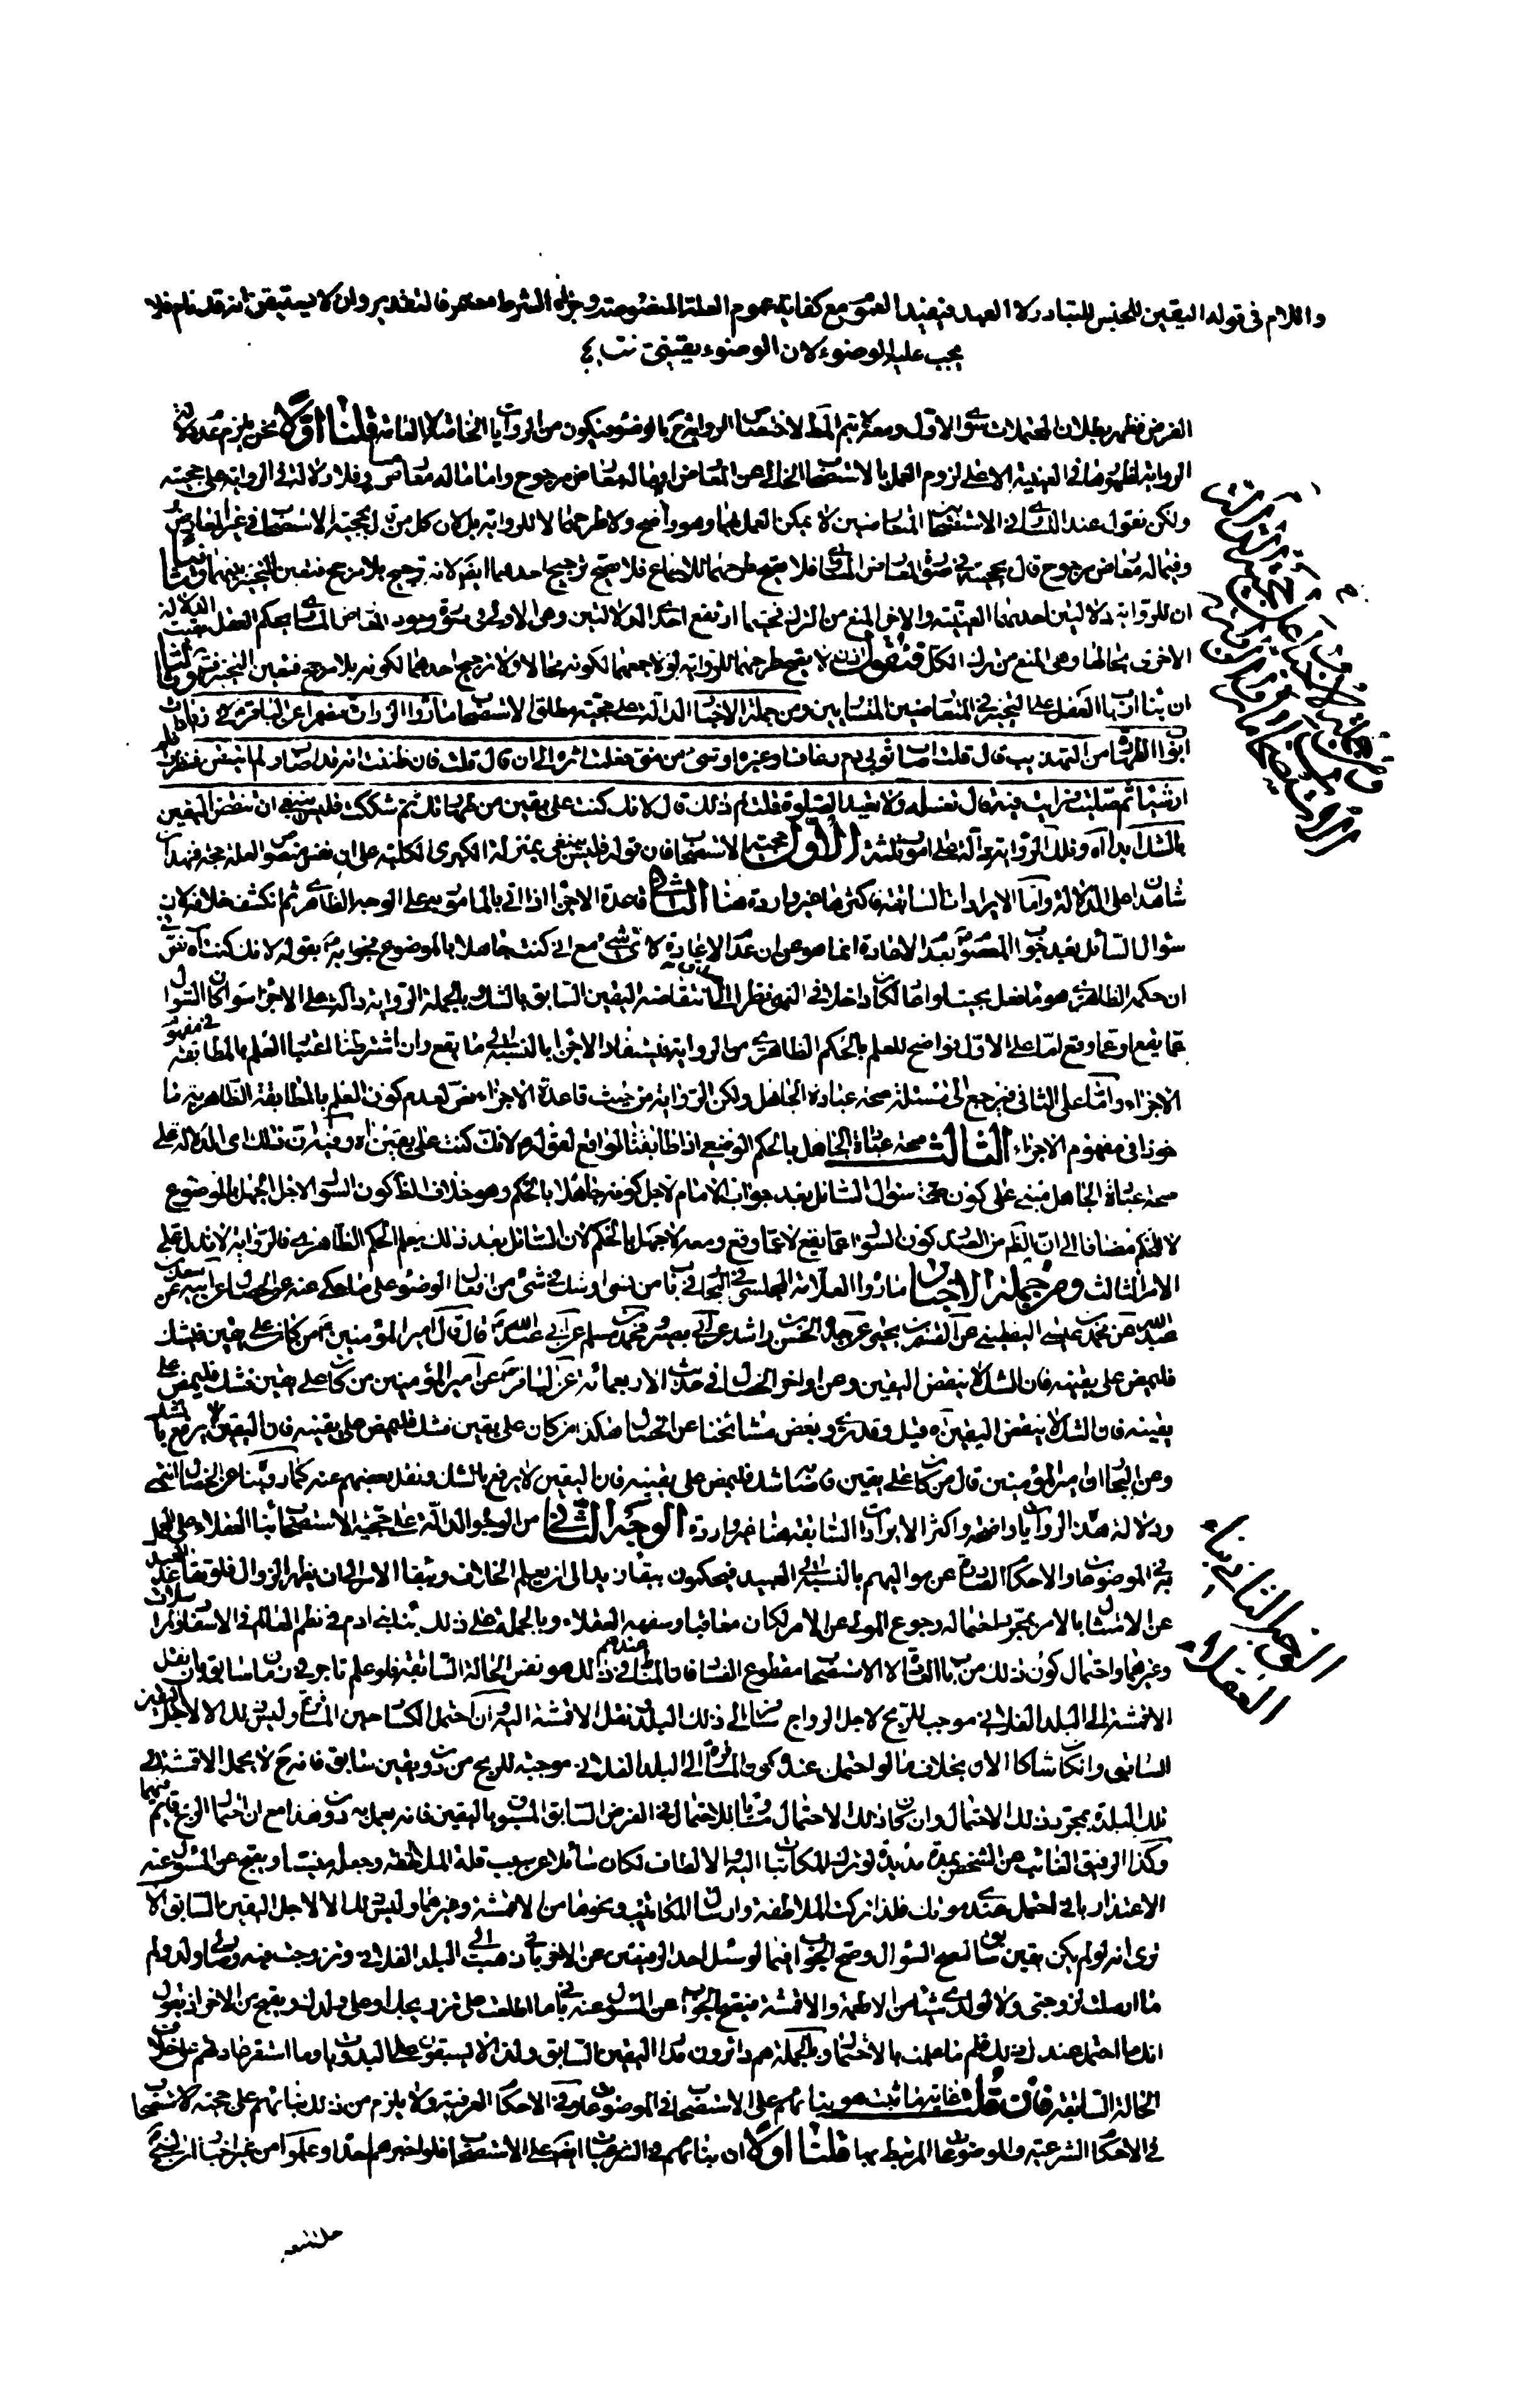 واللام فى قوله اليقين للجنس للتبادر لا العهد فيفيد العموم مع كفاية عموم العلة المنصوصة وجزاء الشرط مضمر فالتقدير وان لا يستيقن انه قد نام فلا
يجب عليه الوضوء لان الوضوء يقينى
الفرض فظهر بطلان المحتملات سوى الاول ومعه لا يتم المط لاختصاص الرواية ح بالوضوء فيكون من الروايات الخاصة لا العامة قلنا اولا نحن نلزم
الرواية لزوم العمل بالاستصحاب الخالى عن المعارض او ماله معارض مرجوح واما ماله معارض فلا دلالة فى الرواية على حجيته
ولكن نقول عند التساوى فى الاستصحابين المتعارضين لا يمكن العمل بهما وهو واضح ولا طرحهما لا للرواية بل لان كل من قال بحجية الاستصحاب فى غير المعارض
وفيما له معارض مرجوح قال بحجيته فى صورة التعارض المساوى فلا يصح طرحهما للاجماع فلا يصح ترجيح احدهما ايضا لانه ترجيح بلا مرجح فتعين التخيير بينهما وثانيا
ان للرواية دلالتين احدهما العينية والاخرى المنع من الترك فحينما ارتفع احدى الدلالتين وهى الاولى فى صورة وجود التعارض المساوى بحكم العقل بقيت الدلالة
الاخرى بحالها وهى المنع من ترك الكل فنقول لا يصح طرحهما للرواية ولا جمعهما لكونه محالا ولا ترجيح احدهما لكونه بلا مرجح فتعين التخيير وثالثا
ان بناء ارباب العقل على التخيير فى المتعارضين المتساويين ومن جملة الاخبار الدالة على حجية مطلق الاستصحاب ما رواه زرارة مضمرا عن الباقر فى زيادات
ابواب الطهارة من التهذيب قال قلت اصاب ثوبى دم رعاف او غيره او شىء من منى فعلمت اثره الى ان قال قلت فان ظننت انه قد اصابه ولم اتيقن فنظرت فلم
ار شيئا ثم صليت فرايت فيه قال تغسله ولا تعيد الصلوة قلت لم ذلك قال لانك كنت على يقين من طهارتك ثم شككت فليس ينبغى ان تنقض اليقين
بالشك ابدا اه وتلك الرواية دالة على امور ثلثة الاول حجية الاستصحاب فان قوله فليس ينبغى بمنزلة الكبرى الكلية على ان منصوص العلة حجة
شاهد على الدلالة واما الايرادات السابقة فاكثرها غير واردة هنا الثانى قاعدة الاجزاء اذا اتى بالمامور به على الوجه الظاهرى ثم انكشف خلافه لان
سؤال السائل بعد جواب المعصوم بعدم الاعادة انما هو عن ان عدم الاعادة لاى شىء مع انى كنت جاهلا بالموضوع فجوابه بقوله لانك كنت اه
ان حكمه الظاهرى هو ما فعل بحيث لو اعاد لكان داخلا فى النهى نظرا الى انتقاضه اليقين السابق بالشك بالجملة الرواية دالة على الاجزاء سواء كان السؤال
عما يقع او عما وقع اما على الاول فواضح للعلم بالحكم الظاهرى من الرواية فيستفاد الاجزاء بالنسبة الى ما يقع وان اشترطنا اعتبار العلم بالمطابقة فى مفهوم
الاجزاء واما على الثانى فيرجع الى مسئلة صحة عبادة الجاهل ولكن الرواية من حيث قاعدة الاجزاء لعدم كون العلم بالمطابقة الظاهرية ما
خوذا فى مفهوم الاجزاء الثالث صحة عبادة الجاهل بالحكم الوضعى اذا طابقت الواقع لقوله لانك كنت على يقين اه وفيه ان ذلك اى الدلالة على
صحة عبادة الجاهل مبنى على كون سؤال السائل بعد جواب الامام لاجل كونه جاهلا بالحكم وهو خلاف الظ لكون السؤال لاجل الجهل بالموضوع
لا الحكم مضافا الى ان الظ من الصدر كون السؤال عما يقع لا عما وقع ومعه لا جهل بالحكم لان السائل بعد ذلك يعلم الحكم الظاهرى فالرواية لا تدل على
الامر الثالث ومن جملة الاخبار ما رواه العلامة المجلسى فى البحار فى باب من نسى او شك فى شىء من افعال الوضوء على ما حكى عنه عن الخصال عن ابيه عن سعد بن
عبد الله عن محمد بن عيسى اليقطينى عن القسم بن يحيى عن جده الحسن بن راشد عن ابى بصير ومحمد بن مسلم عن ابى عبد الله قال قال امير المؤمنين من كان على يقين فشك
فليمض على يقينه فان الشك لا ينقض اليقين وعن اواخر الخصال فى حديث الاربعمائة عن الباقر عن امير المؤمنين من كان على يقين فشك فليمض على
يقينه فان الشك لا ينقض اليقين اه قيل وقد روى بعض مشائخنا عن الخصال هكذا من كان على يقين فشك فليمض على يقينه فان اليقين لا يرفع بالشك
وعن البحار ان امير المؤمنين قال من كان على يقين فاصابه شك فليمض على يقينه فان اليقين لا يرفع بالشك ونقل بعضهم عنه كما روينا عن الخصال انتهى
ودلالة هذه الروايات واضحة واكثر الايرادات السابقة هنا غير واردة الوجه الثانى من الوجوه الدالة على حجية الاستصحاب بناء العقلاء على العمل
به فى الموضوعات والاحكام الصادرة عن مواليهم بالنسبة الى العبيد فيحكمون ببقاء زيد الى ان يعلم الخلاف وببقاء الامر الى ان يظهر الزوال فلو تقاعد العبد
عن الامتثال بالامر بمجرد احتماله رجوع المولى عن الامر لكان معاقبا وسفهه العقلاء وبالجملة على ذلك بناء بنى ادم فى نظم العالم فى الاسفار
وغيرها واحتمال كون ذلك من باب الغلبة لا الاستصحاب مقطوع الفساد فان المناط فى ذلك عندهم هو نفس الحالة السابقة فلو علم تاجر فى زمان سابق بان نقل
الاقمشة الى البلد الفلانى موجب للربح لاجل الرواج سافر الى ذلك البلد ونقل الاقمشة اليه وان احتمل الكساد حين المسافرة وليس ذلك الا لاجل اليقين
السابق وان كان شاكا الان بخلاف ما لو احتمل عنده كون المسافرة الى البلد الفلانى موجبة للربح من دون يقين سابق فانه ح لا يحمل الاقمشة الى
تلك البلدة بمجرد ذلك الاحتمال وان كان ذلك الاحتمال مساويا للاحتمال فى الفرض السابق المسبوق باليقين فانه يعمل به دون هذا مع ان احتمال الربح قائم فيهما
وكذا الرفيق الغائب عن الشخص بمدة مديدة لو ترك المكاتبات اليه والالطاف لكان سائلا عن سبب قلة الملاطفة وجعله منسيا ويقبح عن المسئول عنه
الاعتذار بانى احتمل عندى موتك فلذا تركت الملاطفة وارسال المكاتيب ونحوها من الاقمشة وغيرها وليس ذلك الا لاجل اليقين السابق الا
ترى انه لو لم يكن يقين سابق لصح السؤال وصح الجواب فيما لو سئل احد الرفيقين عن الاخر بانى ذهبت الى البلد الفلانى وتزوجت فيه وصار لى اولاد ولم
ما ارسلت لزوجتى ولا لولدى شيئا من الاطعمة والاقمشة فيصح الجواب عن المسئول عنه بانى ما اطلعت على تزويجك او على ولدك ويقبح من الاخر ان يقول
انك ما احتمل عندك ذلك فلم ما عملت بالاحتمال وبالجملة هم دائرون مدار اليقين السابق ولذا لا يسبقون على البلد وبا وما استقر عادتهم على خلاف
الحالة السابقة فان قلت غاية ما ثبت هو بنائهم على الاستصحاب فى الموضوعات وفى الاحكام العرفية ولا يلزم من ذلك بنائهم على حجية الاستصحاب
فى الاحكام الشرعية والموضوعات المرتبط بها قلنا اولا ان بنائهم فى الشرعيات ايضا على الاستصحاب فلو اخبرهم احد وعلموا من غير اخبار
الوجه الثانى بناء
العقلاء